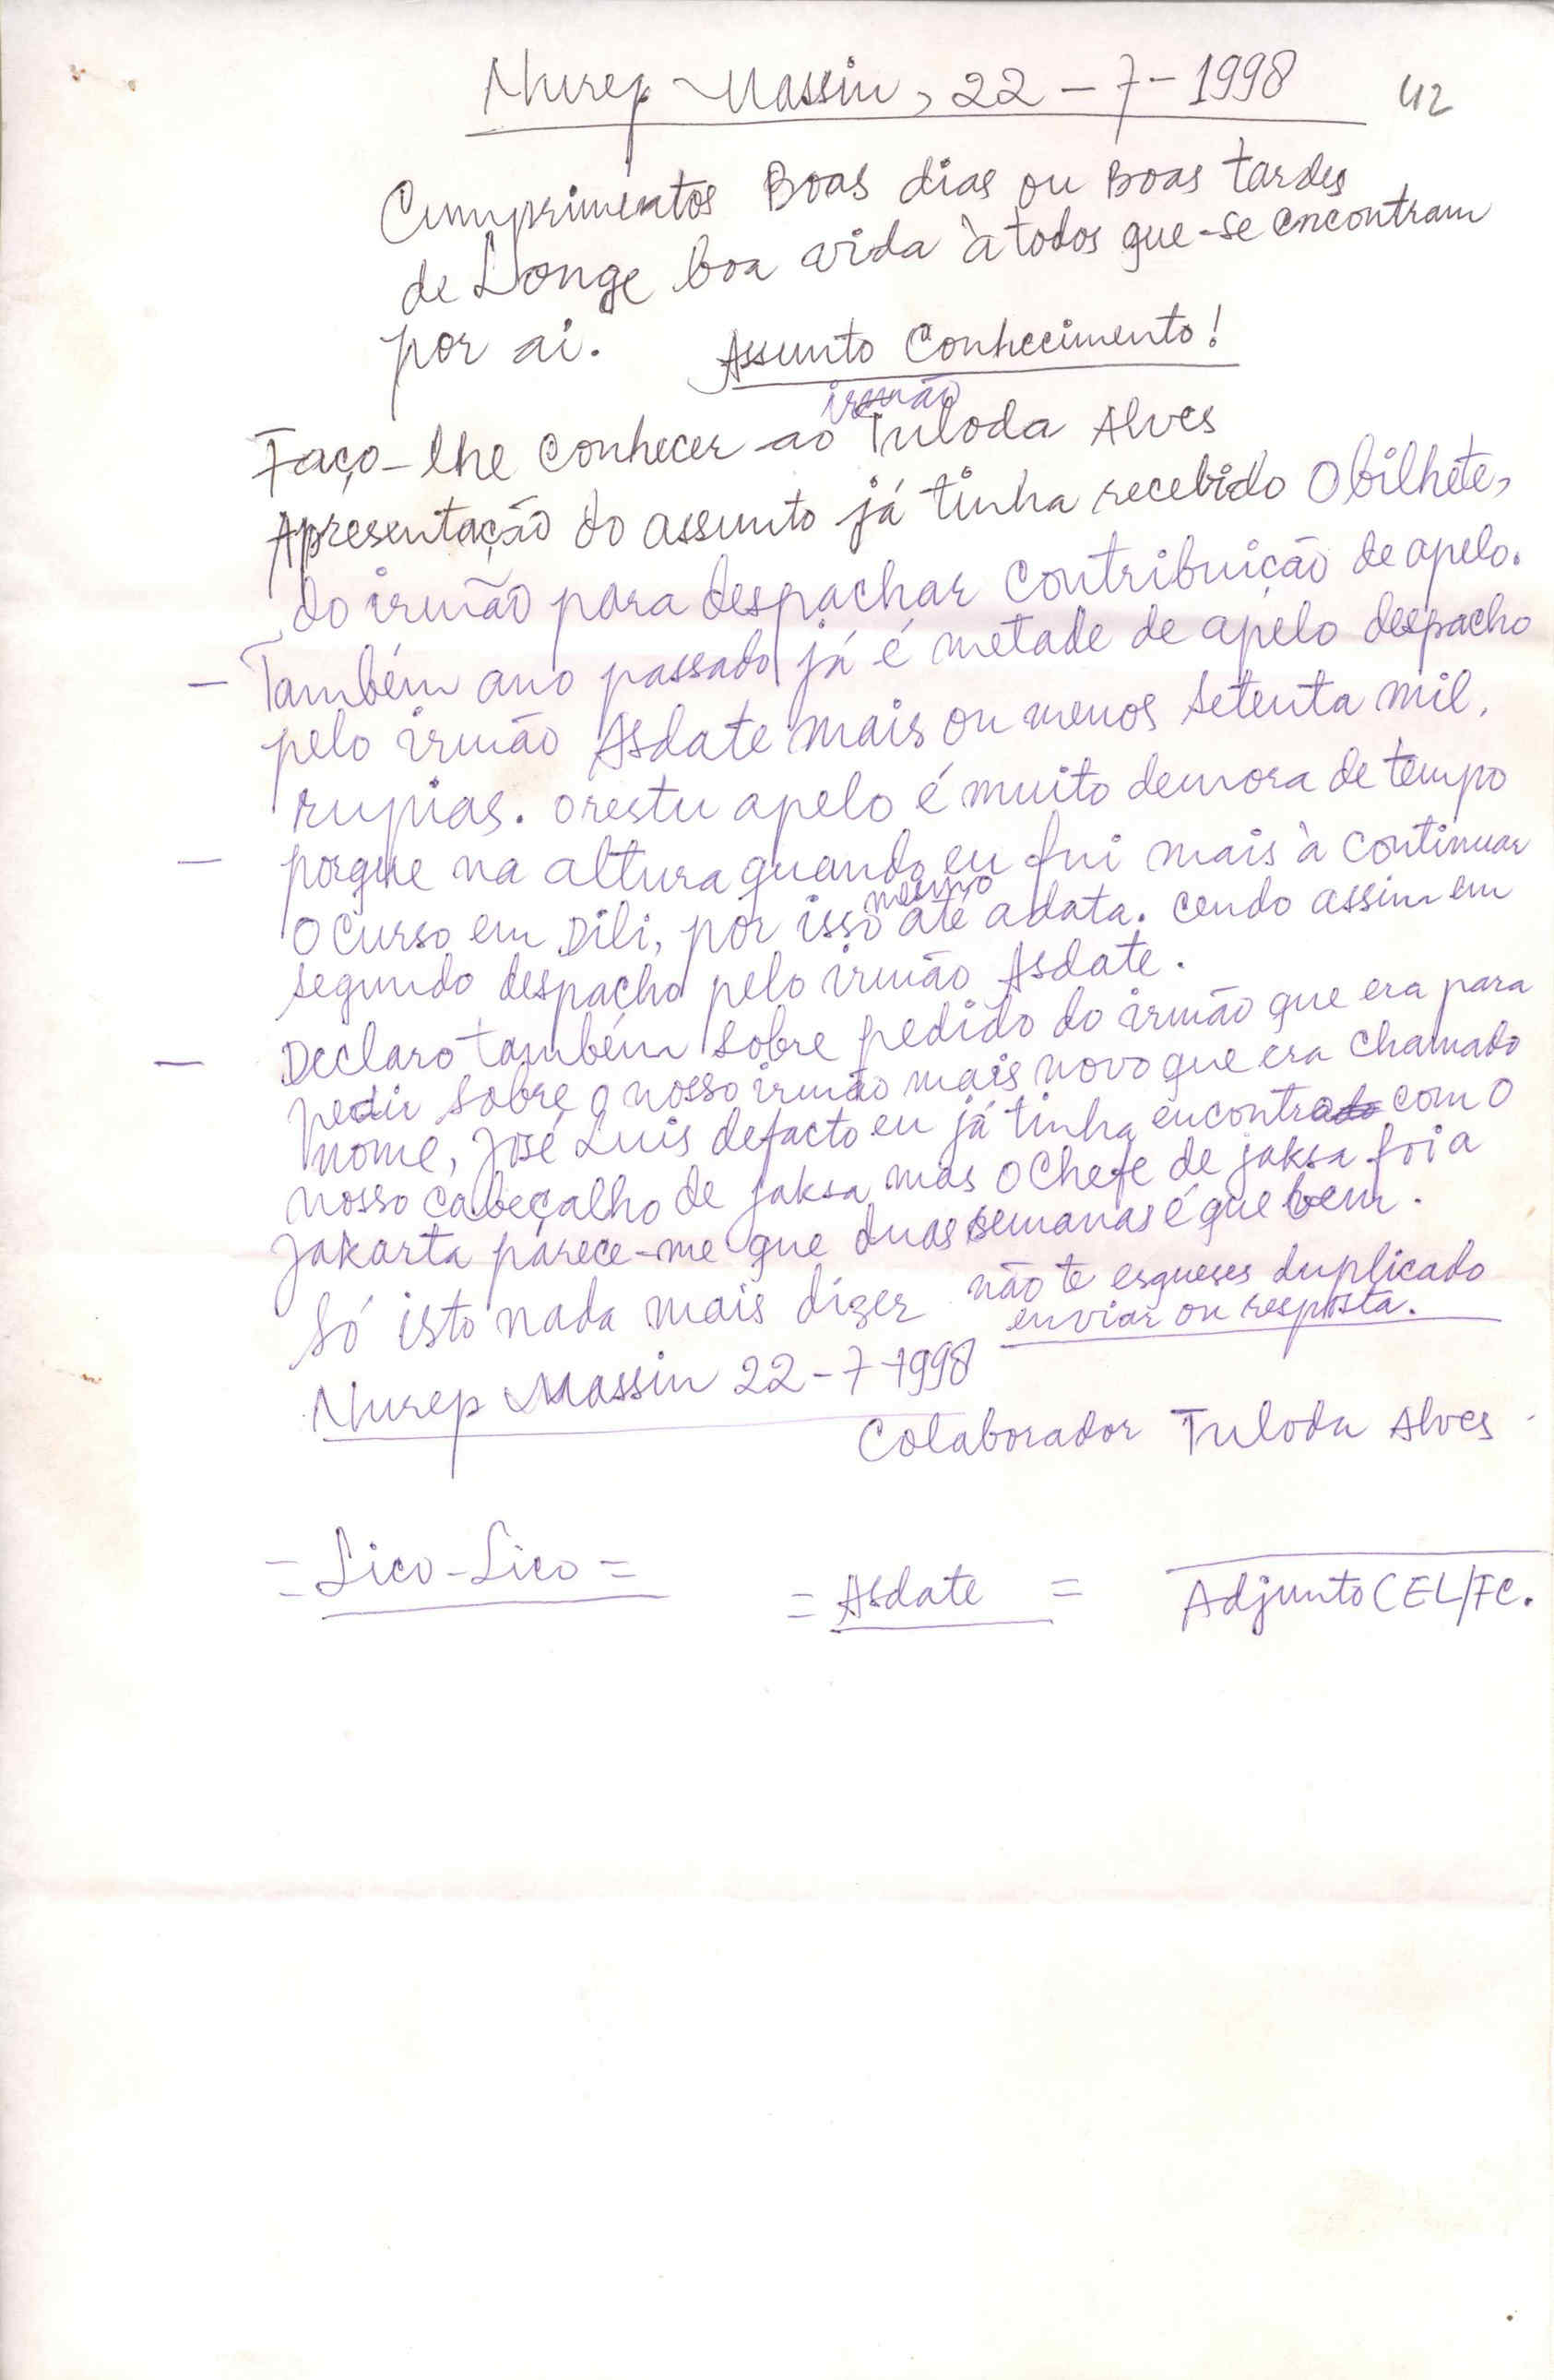 Nurep Massin, 22-7-1998
42
Cumprimentos Boas dias ou Boas tardes
de Longe boa vida à todos que-se encontram
por ai. Assunto Conhecimento!
irmão
Faço-lhe conhecer ao Tuloda Alves
Apresentação do assunto já tinha recebido O bilhete,
do irmão para despachar contribuição de apelo.
- Também ano passado já é metade de apelo despacho
pelo irmão Asdate mais ou menos setenta mil.
rupias. o restu apelo é muito demora de tempo
- porque na altura quando eu fui mais à continuar
mesmo
O curso em Dili, por isso até a data. cendo assim em
segundo despacho pelo irmão Asdate.
- Declaro também sobre pedido do irmão que era para
pedir sobre o nosso irmão mais novo que era chamado
nome, José Luis defacto eu já tinha encontrado com O
nosso cabeçalho de jaksa mas O Chefe de jaksa foi a
Jakarta parece-me que duas semanas é que bem.
Só isto nada mais dizer não te esqueses duplicado
enviar ou resposta.
Nurep Massin 22-7-1998
Colaborador Tuloda Alves
= Lico-Lico =
= Asdate =
Adjunto CEL/FC.